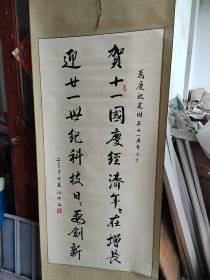 為慶祝建国五十一周年
賀十一國慶經濟年々在增長
迎廿一世紀科技日々要創新